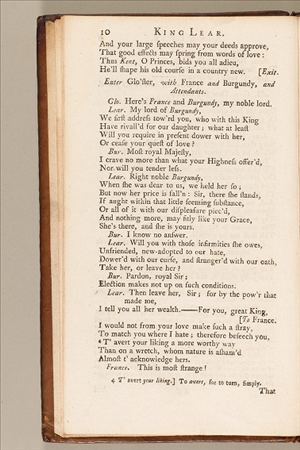 10 KING LEAR.
And your large speeches may your deeds approve,
That good effects may spring from words of love:
Thus Kent, O Princes, bids you all adieu,
He'll shape his old course in a country new. [Exit.
Enter Glo'ster, with France and Burgundy, and
Attendants.
Glo. Here's France and Burgundy, my noble lord.
Lear. My lord of Burgundy,
We first address tow'rd you, who with this King
Have rivall'd for our daughter; what at least
Will you require in present dower with her,
Or cease your quest of love?
Bur. Most royal Majesty,
I crave no more than what your Highness offer'd,
Nor will you tender less.
Lear. Right noble Burgundy,
When she was dear to us, we held her so;
But now her price is fall'n: Sir, there she stands,
If aught within that little seeming substance,
Or all of it with our displeasure piec'd,
And nothing more, may fitly like your Grace,
She's there, and she is yours.
Bur. I know no answer.
Lear. Will you with those infirmities she owes,
Unfriended, new-adopted to our hate,
Dower'd with our curse, and stranger'd with our oath,
Take her, or leave her?
Bur. Pardon, royal Sir;
Election makes not up on such conditions.
Lear. Then leave her, Sir; for by the pow'r that
made me,
I tell you all her wealth.——For you, great King,
[To France.
I would not from your love make such a stray,
To match you where I hate; therefore beseech you,
4 T' avert your liking a more worthy way
Than on a wretch, whom nature is asham'd
Almost t' acknowledge hers.
France. This is most strange!
4 T' avert your liking.] To avert, for to turn, simply.
That